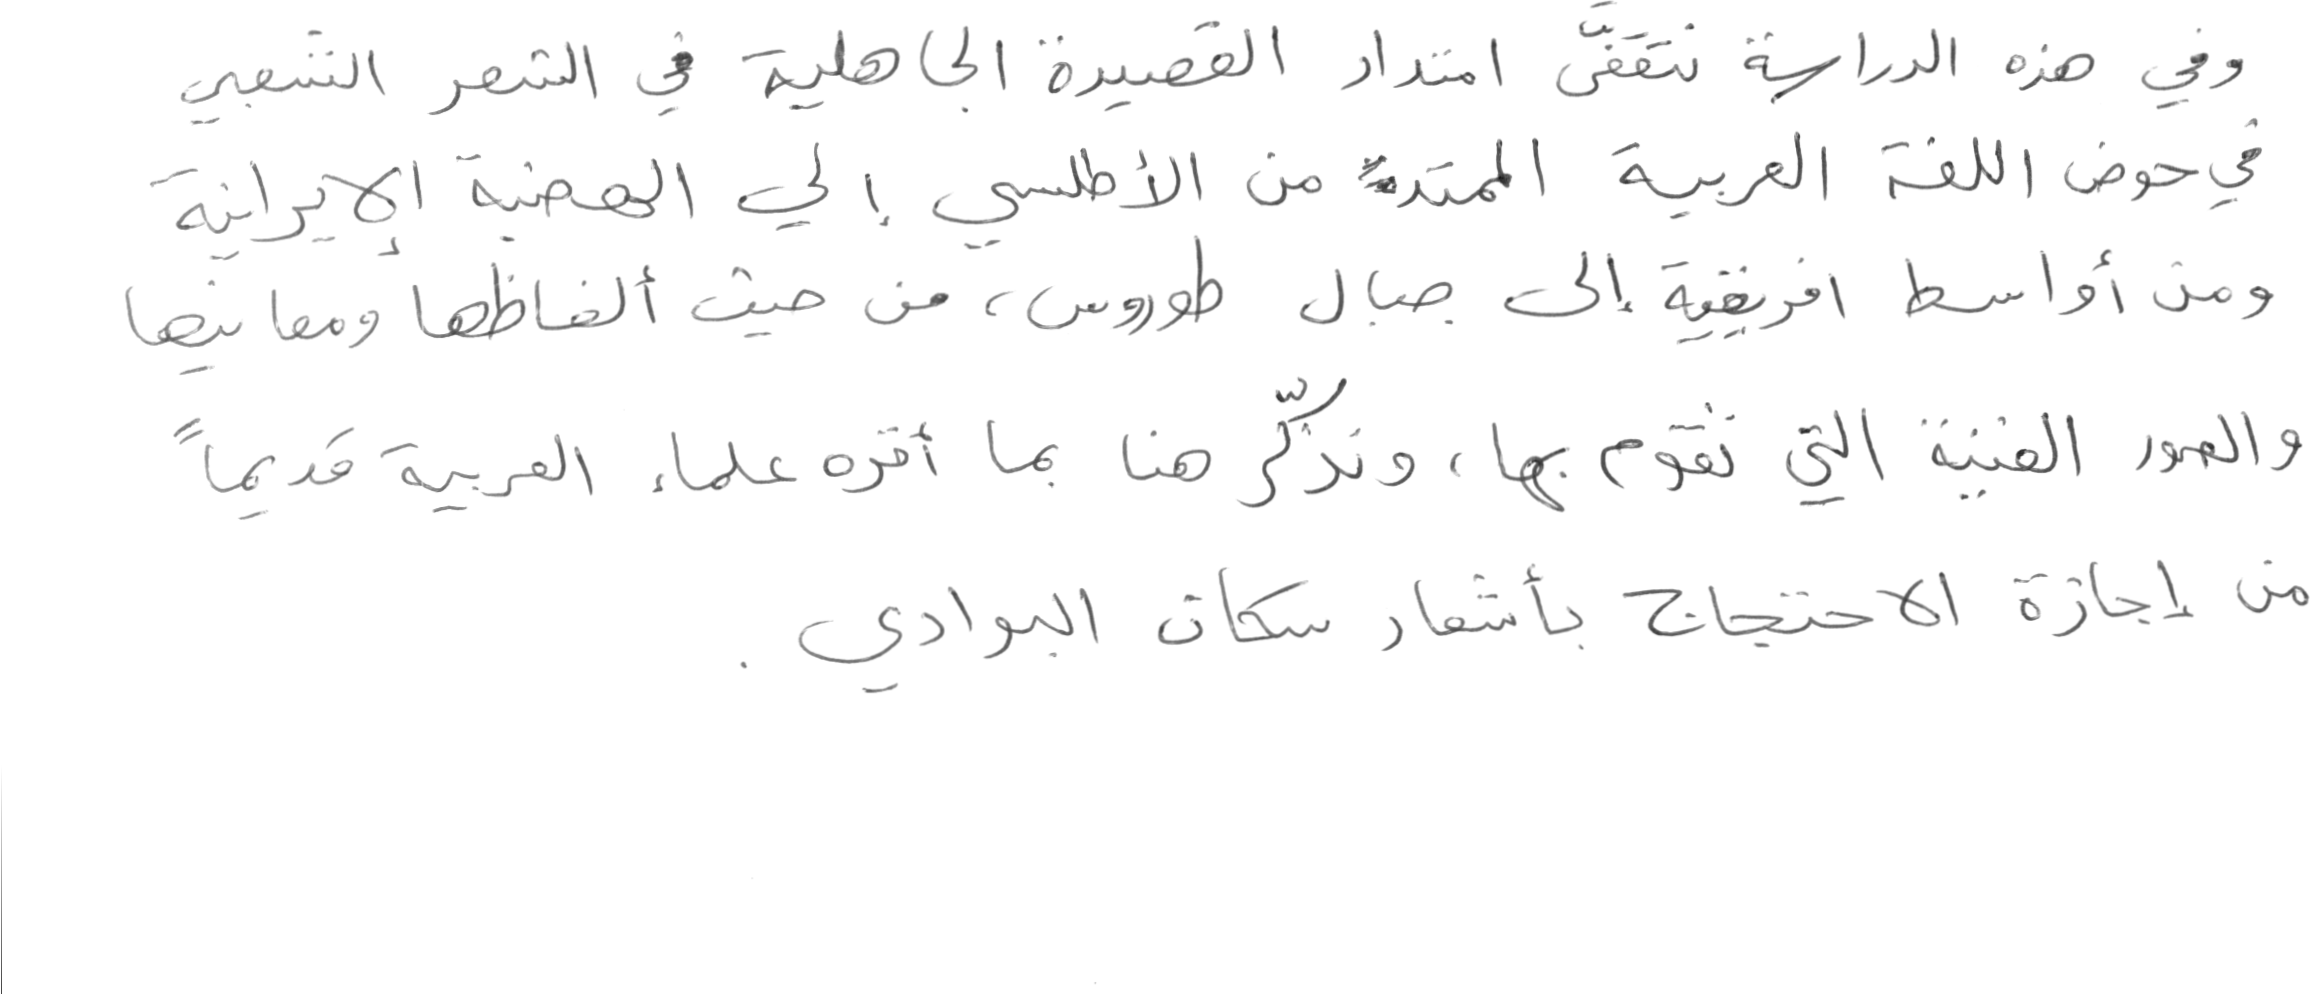 وفي هذه الدراسة نتقفَّى امتداد القصيدة الجاهلية في الشعر الشعبي
في حوض اللغة العربية الممتدة من الأطلسي إلي الهضبة الإيرانية
ومن أواسط افريقية إلى جبال طوروس، من حيث ألفاظها ومعانيها
والصور الفنية التي تقوم بها، ونذكّر هنا بما أقره علماء العربية قديماً
من إجازة الاحتجاج بأشعار سكان البوادي .